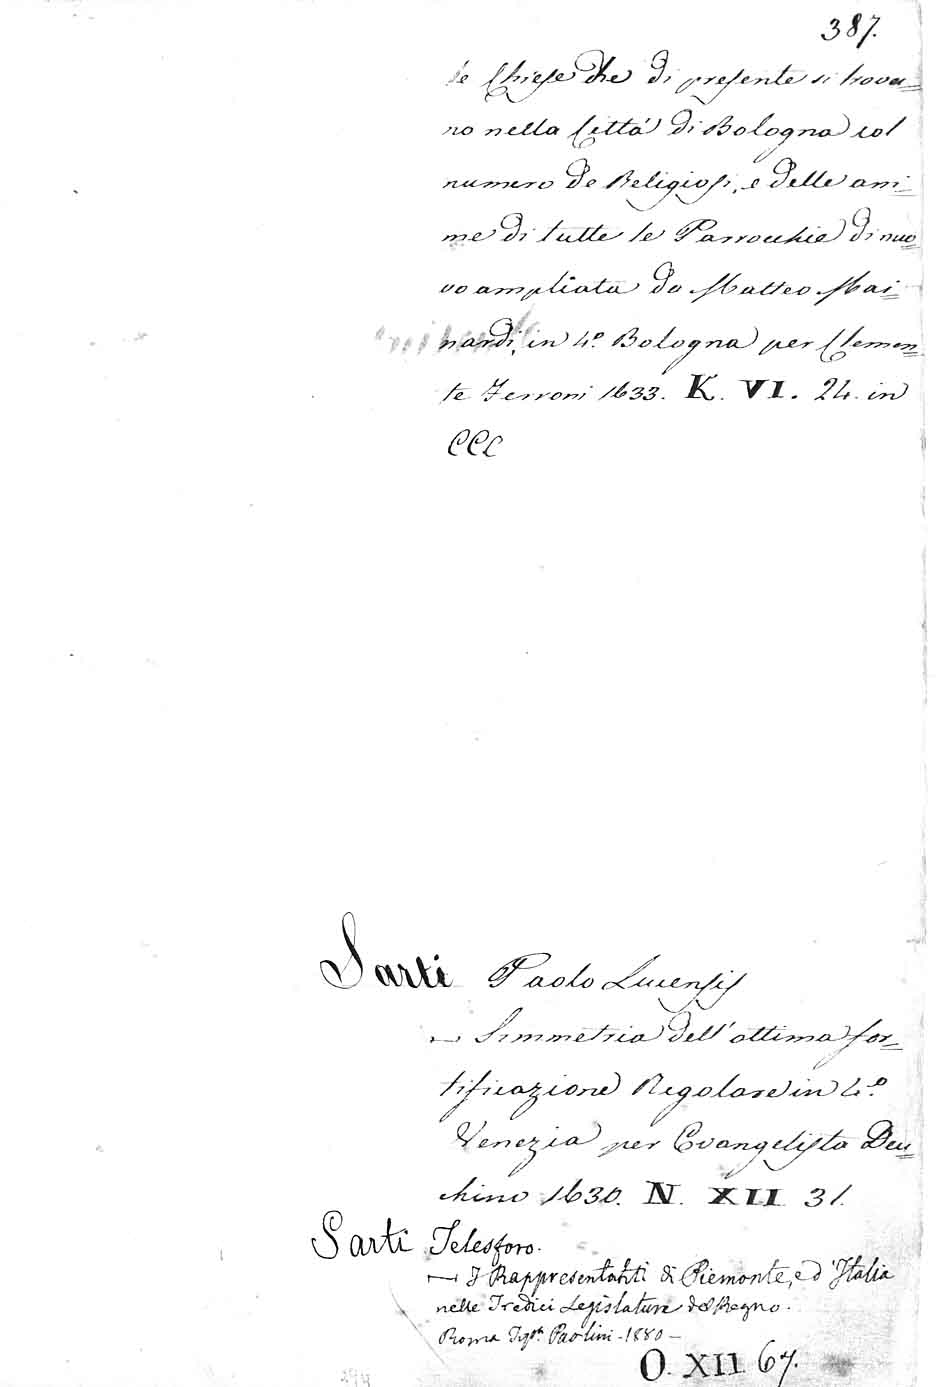 387.
le Chiese che di presente si trova=
no nella Città di Bologna col
numero de Religiosi, e delle ani=
me di tutte le Parrocchie di nuo=
vo ampliata da Matteo Mai=
nardi, in 4.º Bologna per Clemen=
te Ferroni 1633. K. VI. 24. in
CCC
Sarti Paolo Lucensis
— Simmetria dell' ottima for=
tificazione Regolare in 4.º
Venezia per Evangelista Deu=
chino 1630. N. XII 31.
Sarti Telesforo.
— I Rappresentanti di Piemonte, e d'Italia
nelle Tredici Legislature del Regno.
Roma Tipᵒᵍʳ Paolini - 1880 —
O. XII 67.